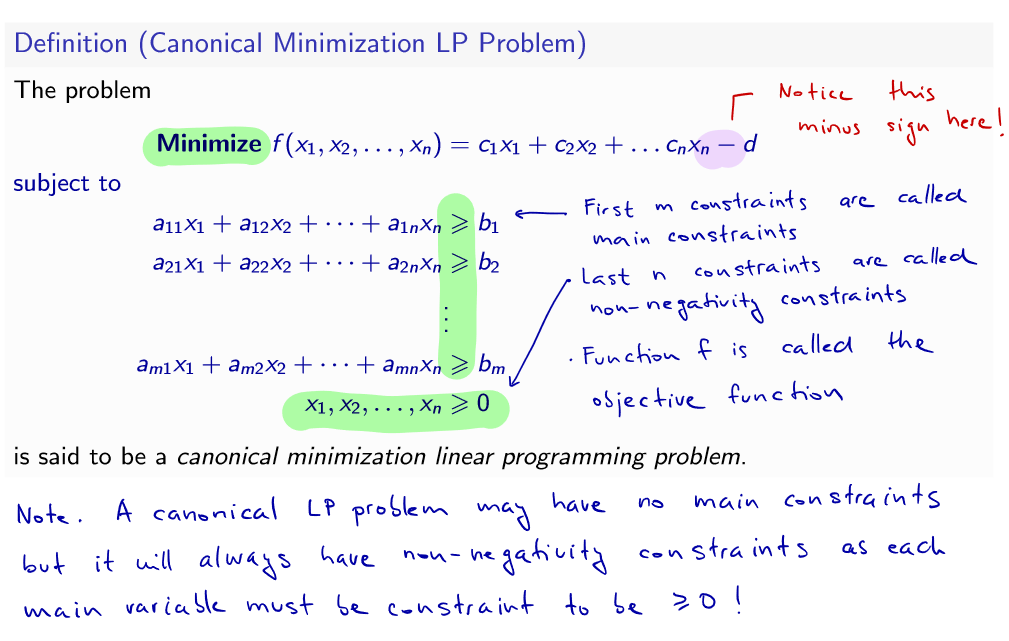 Definition (Canonical Minimization LP Problem)
The problem
Notice this
minus sign here!
Minimize f(x₁, x₂, . . . , xₙ) = c₁x₁ + c₂x₂ + . . . cₙxₙ − d
subject to
a₁₁x₁ + a₁₂x₂ + · · · + a₁ₙxₙ ⩾ b₁
a₂₁x₁ + a₂₂x₂ + · · · + a₂ₙxₙ ⩾ b₂
⋮
aₘ₁x₁ + aₘ₂x₂ + · · · + aₘₙxₙ ⩾ bₘ
x₁, x₂, . . . , xₙ ⩾ 0
First m constraints are called
main constraints
· Last n constraints are called
non-negativity constraints
· Function f is called the
objective function
is said to be a canonical minimization linear programming problem.
Note. A canonical LP problem may have no main constraints
but it will always have non-negativity constraints as each
main variable must be constraint to be ⩾ 0 !